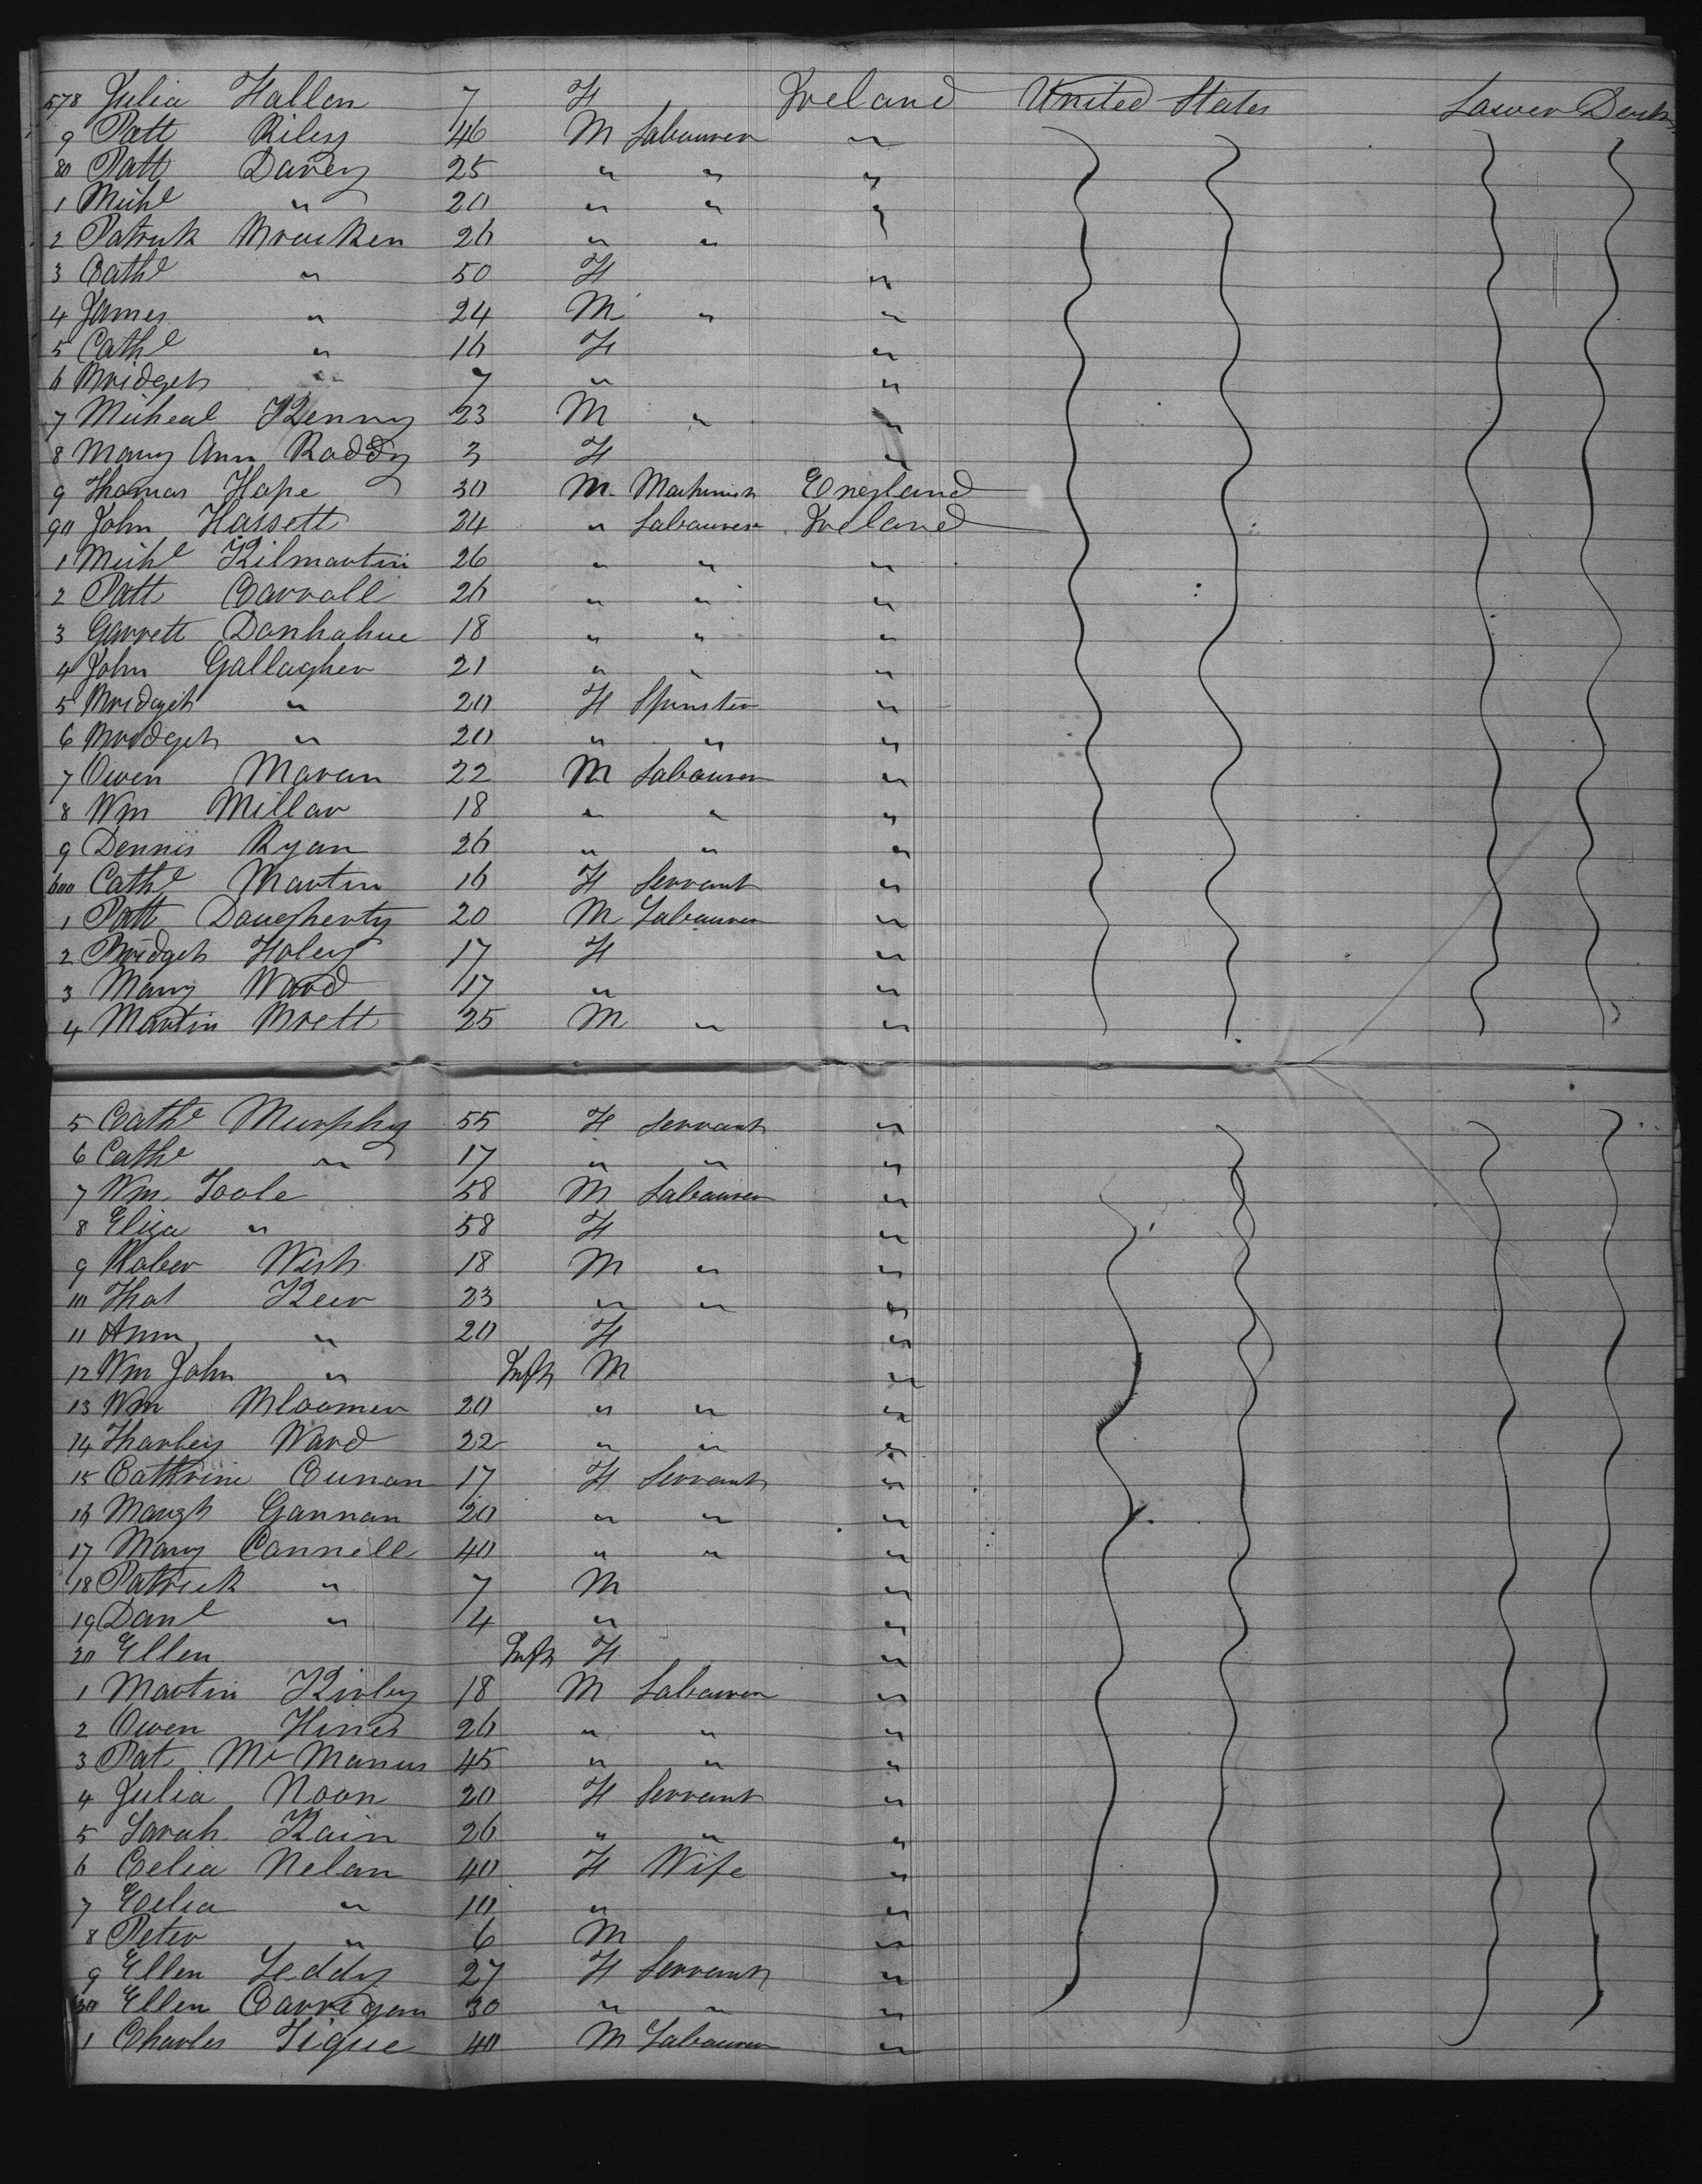 578 Julia Hallen 7 F Ireland United States Lower Deck
9 Patt Riley 46 M Labourer "
80 Patt Davey 25 " " "
1 Michl " 20 " " "
2 Patrick Bracken 26 " " "
3 Cathe " 50 F "
4 James " 24 M " "
5 Cathe " 16 F "
6 Bridget " 7 " "
7 Micheal Kenny 23 M " "
8 Mary Ann Roddy 3 F "
9 Thomas Hope 30 M Machinist England
90 John Hassett 24 " Labourer Ireland
1 Michl Kilmartin 26 " " "
2 Patt Carroll 26 " " "
3 Garrett Donhahue 18 " " "
4 John Gallagher 21 " " "
5 Bridget " 20 F Spinster "
6 Bridget " 20 " " "
7 Owen Moran 22 M Labourer "
8 Wm Millar 18 " " "
9 Dennis Ryan 26 " " "
600 Cathe Martin 16 F Servant "
1 Patt Dougherty 20 M Labourer "
2 Bridget Foley 17 F "
3 Mary Ward 17 " "
4 Martin Brett 25 M " "
5 Cathe Murphy 55 F Servant "
6 Cathe " 17 " " "
7 Wm Toole 58 M Labourer "
8 Eliza " 58 F "
9 18 M " "
10 Thos 23 " " "
11 Ann " 20 F "
12 Wm John " Inft M "
13 Wm Bloomer 20 " " "
14 Ward 22 " " "
15 Cathrine Cunan 17 F Servant "
16 Margt Gannan 20 " " "
17 Mary Connell 40 " " "
18 Patrick " 7 M "
19 Danl " 4 " "
20 Ellen Inft F "
1 Martin Kirby 18 M Labourer "
2 Owen Hines 26 " " "
3 Pat McManus 45 " " "
4 Julia Noon 20 F Servant "
5 Sarah Kain 26 " " "
6 Celia Nelan 40 F Wife "
7 Celia " 10 " "
8 Peter " 6 M "
9 Ellen Leddy 27 F Servant "
30 Ellen Carrigan 30 " " "
1 Charles Tigue 40 M Labourer "